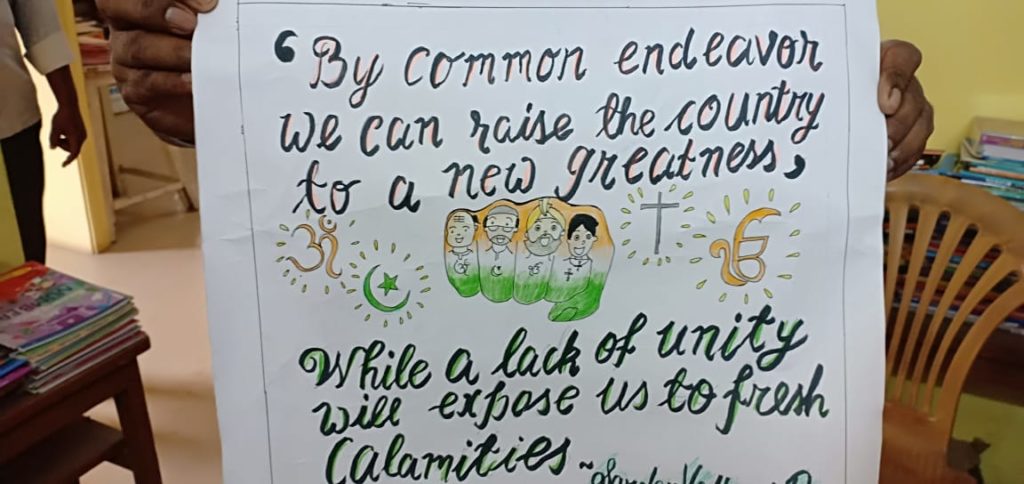 ‘By common endeavor
we can raise the country
to a new greatness,
ॐ
ੴ
While a lack of unity
will expose us to fresh
Calamities ~